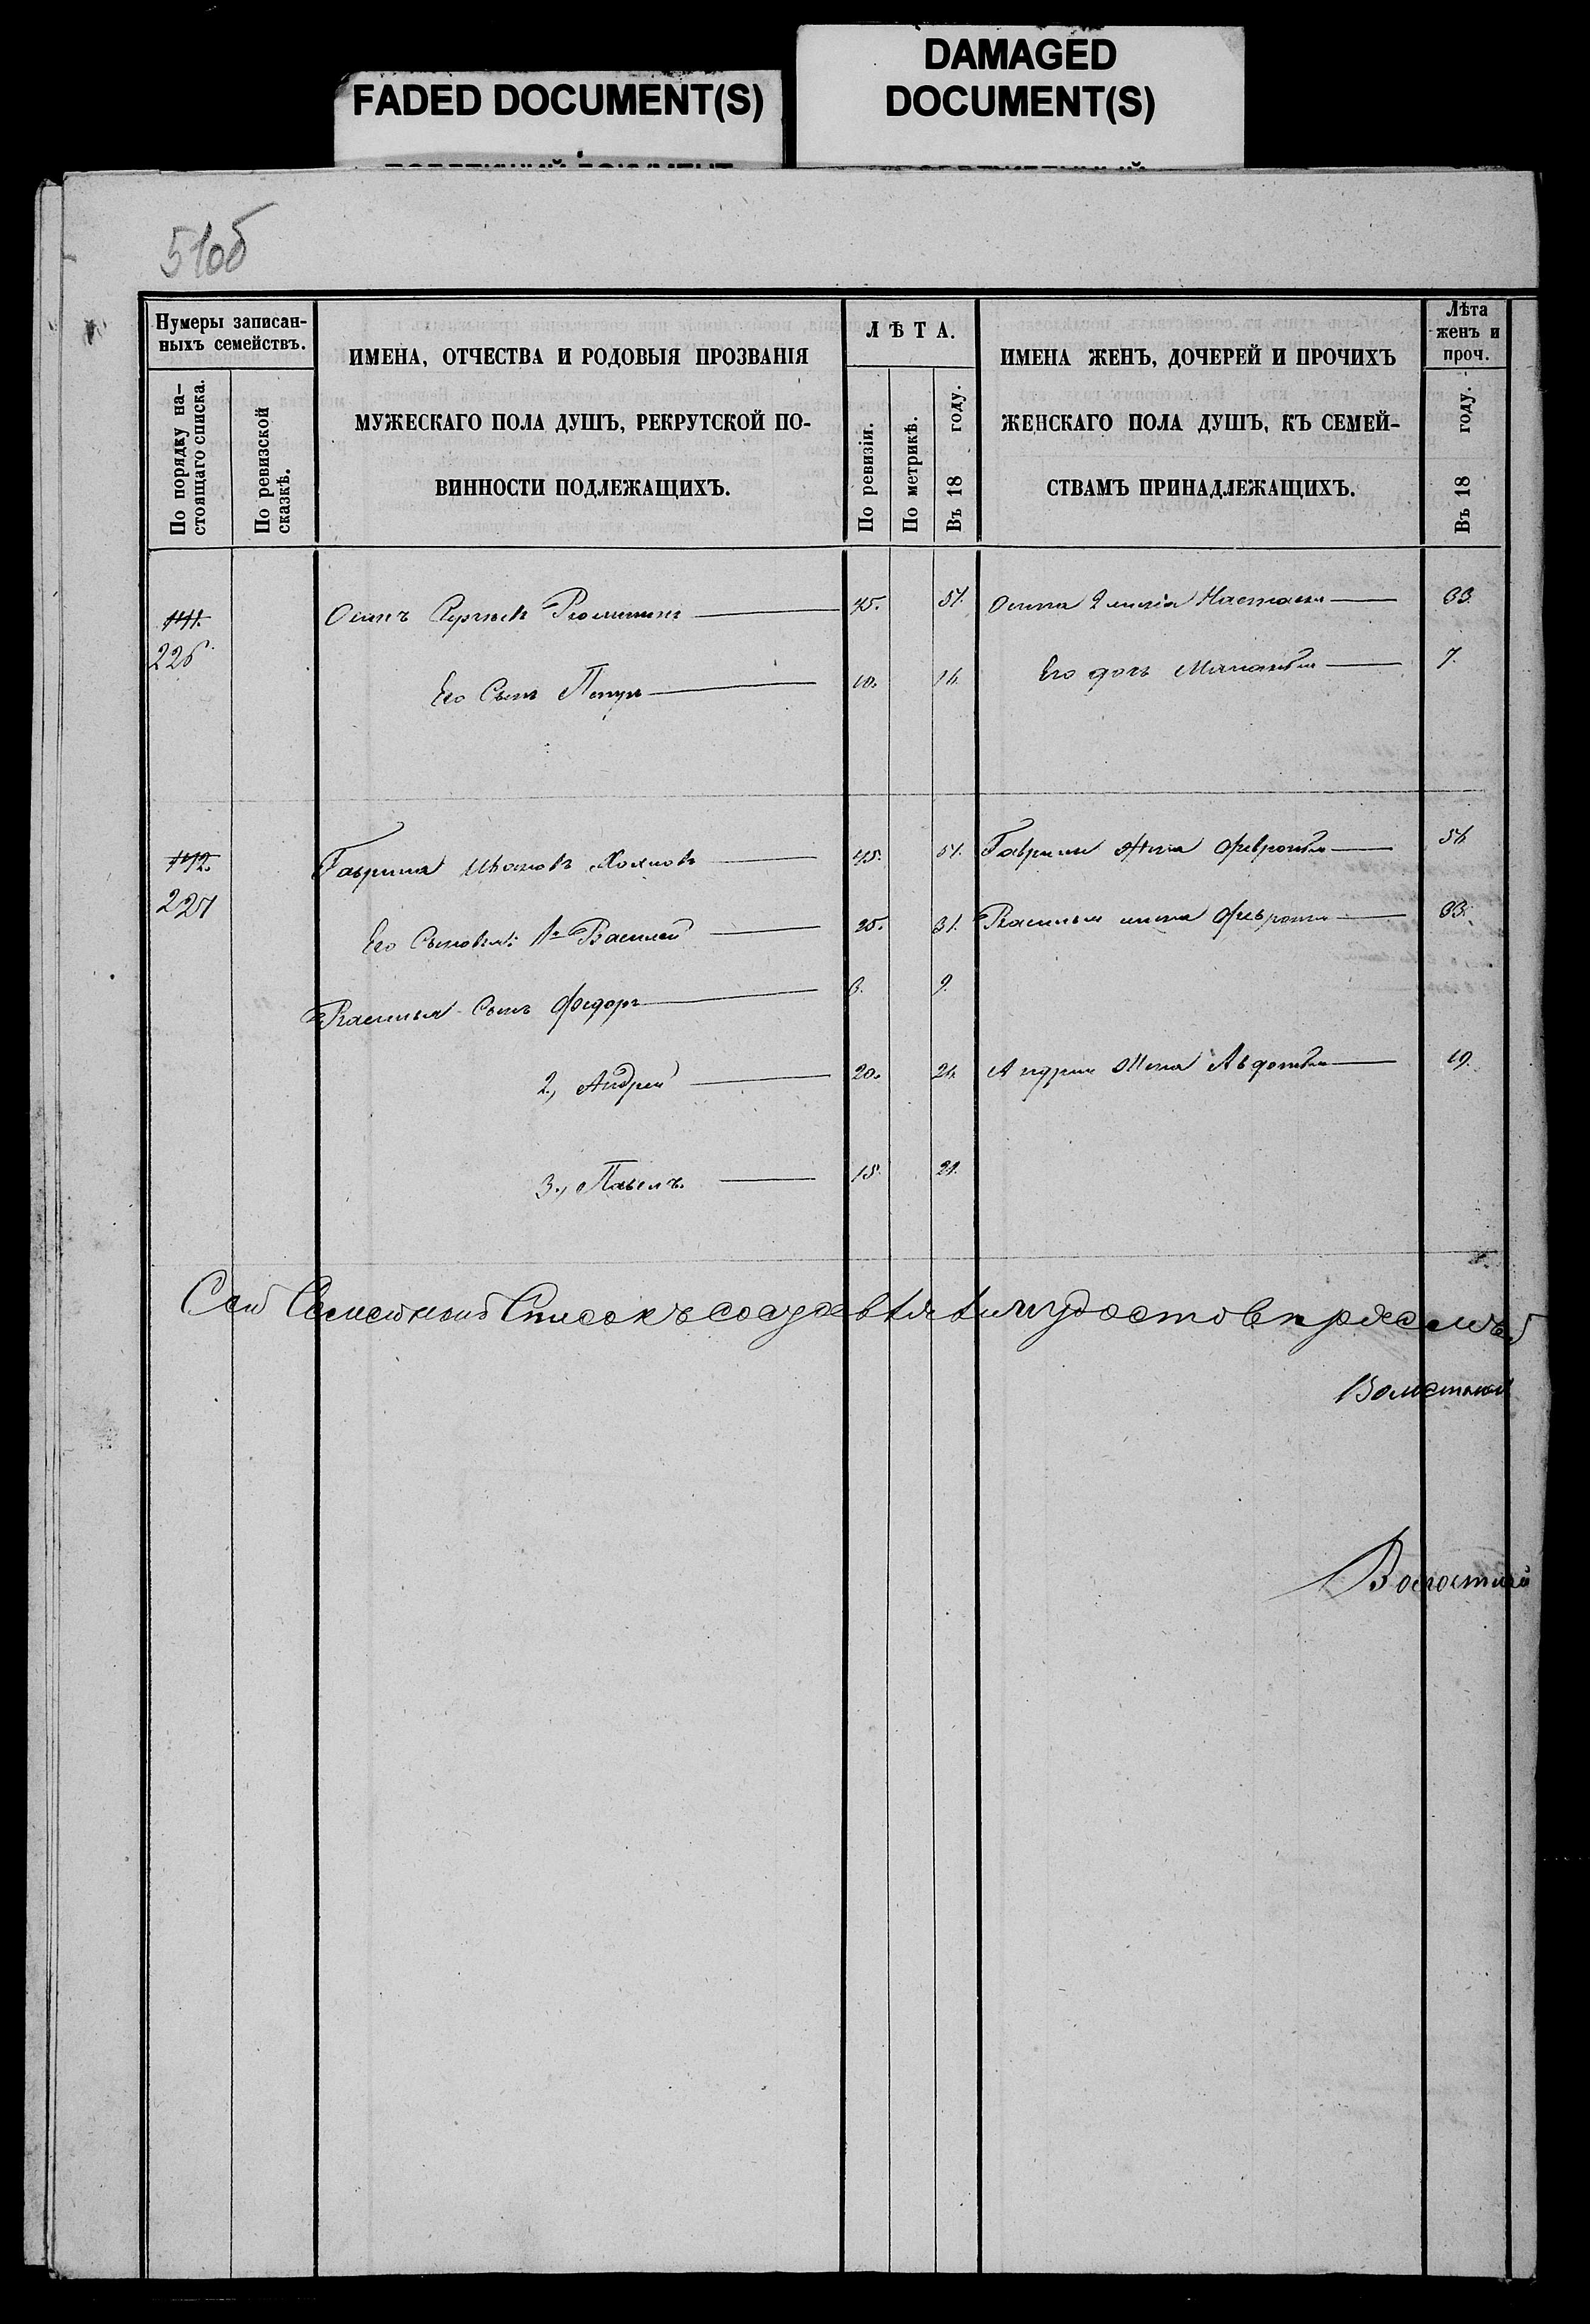 FADED DOCUMENT(S)
DAMAGED
DOCUMENT(S)
51об
Нумеры записан-
ныхъ семействъ.
По порядку на-
стоящаго списка.
По ревизской
сказкѣ.
ИМЕНА, ОТЧЕСТВА И РОДОВЫЯ ПРОЗВАНІЯ
МУЖЕСКАГО ПОЛА ДУШЪ, РЕКРУТСКОЙ ПО-
ВИННОСТИ ПОДЛЕЖАЩИХЪ.
ЛѢТА.
По ревизіи.
По метрикѣ.
Въ 18 году.
ИМЕНА ЖЕНЪ, ДОЧЕРЕЙ И ПРОЧИХЪ
ЖЕНСКАГО ПОЛА ДУШЪ, КЪ СЕМЕЙ-
СТВАМЪ ПРИНАДЛЕЖАЩИХЪ.
Лѣта
женъ и
проч.
Въ 18 году.
Осипъ 45. 51. Осипа 2 Настасья 33.
226
Его Сынъ Петръ 10. 16 Его дочь 7.
Гаврила Ивановъ 45. 51. Гаврилы Жена Февронья 54
227
Его Сыновья: 1й Василей 25. 31. Василья жена Февронья 33.
Василья Сынъ Федоръ 3. 9.
2, Андрей 20. 26 Андрея Жена Авдотья 19.
3, Павелъ. 15 21.
Сей Семейный Списокъ
Волостной
Волостной